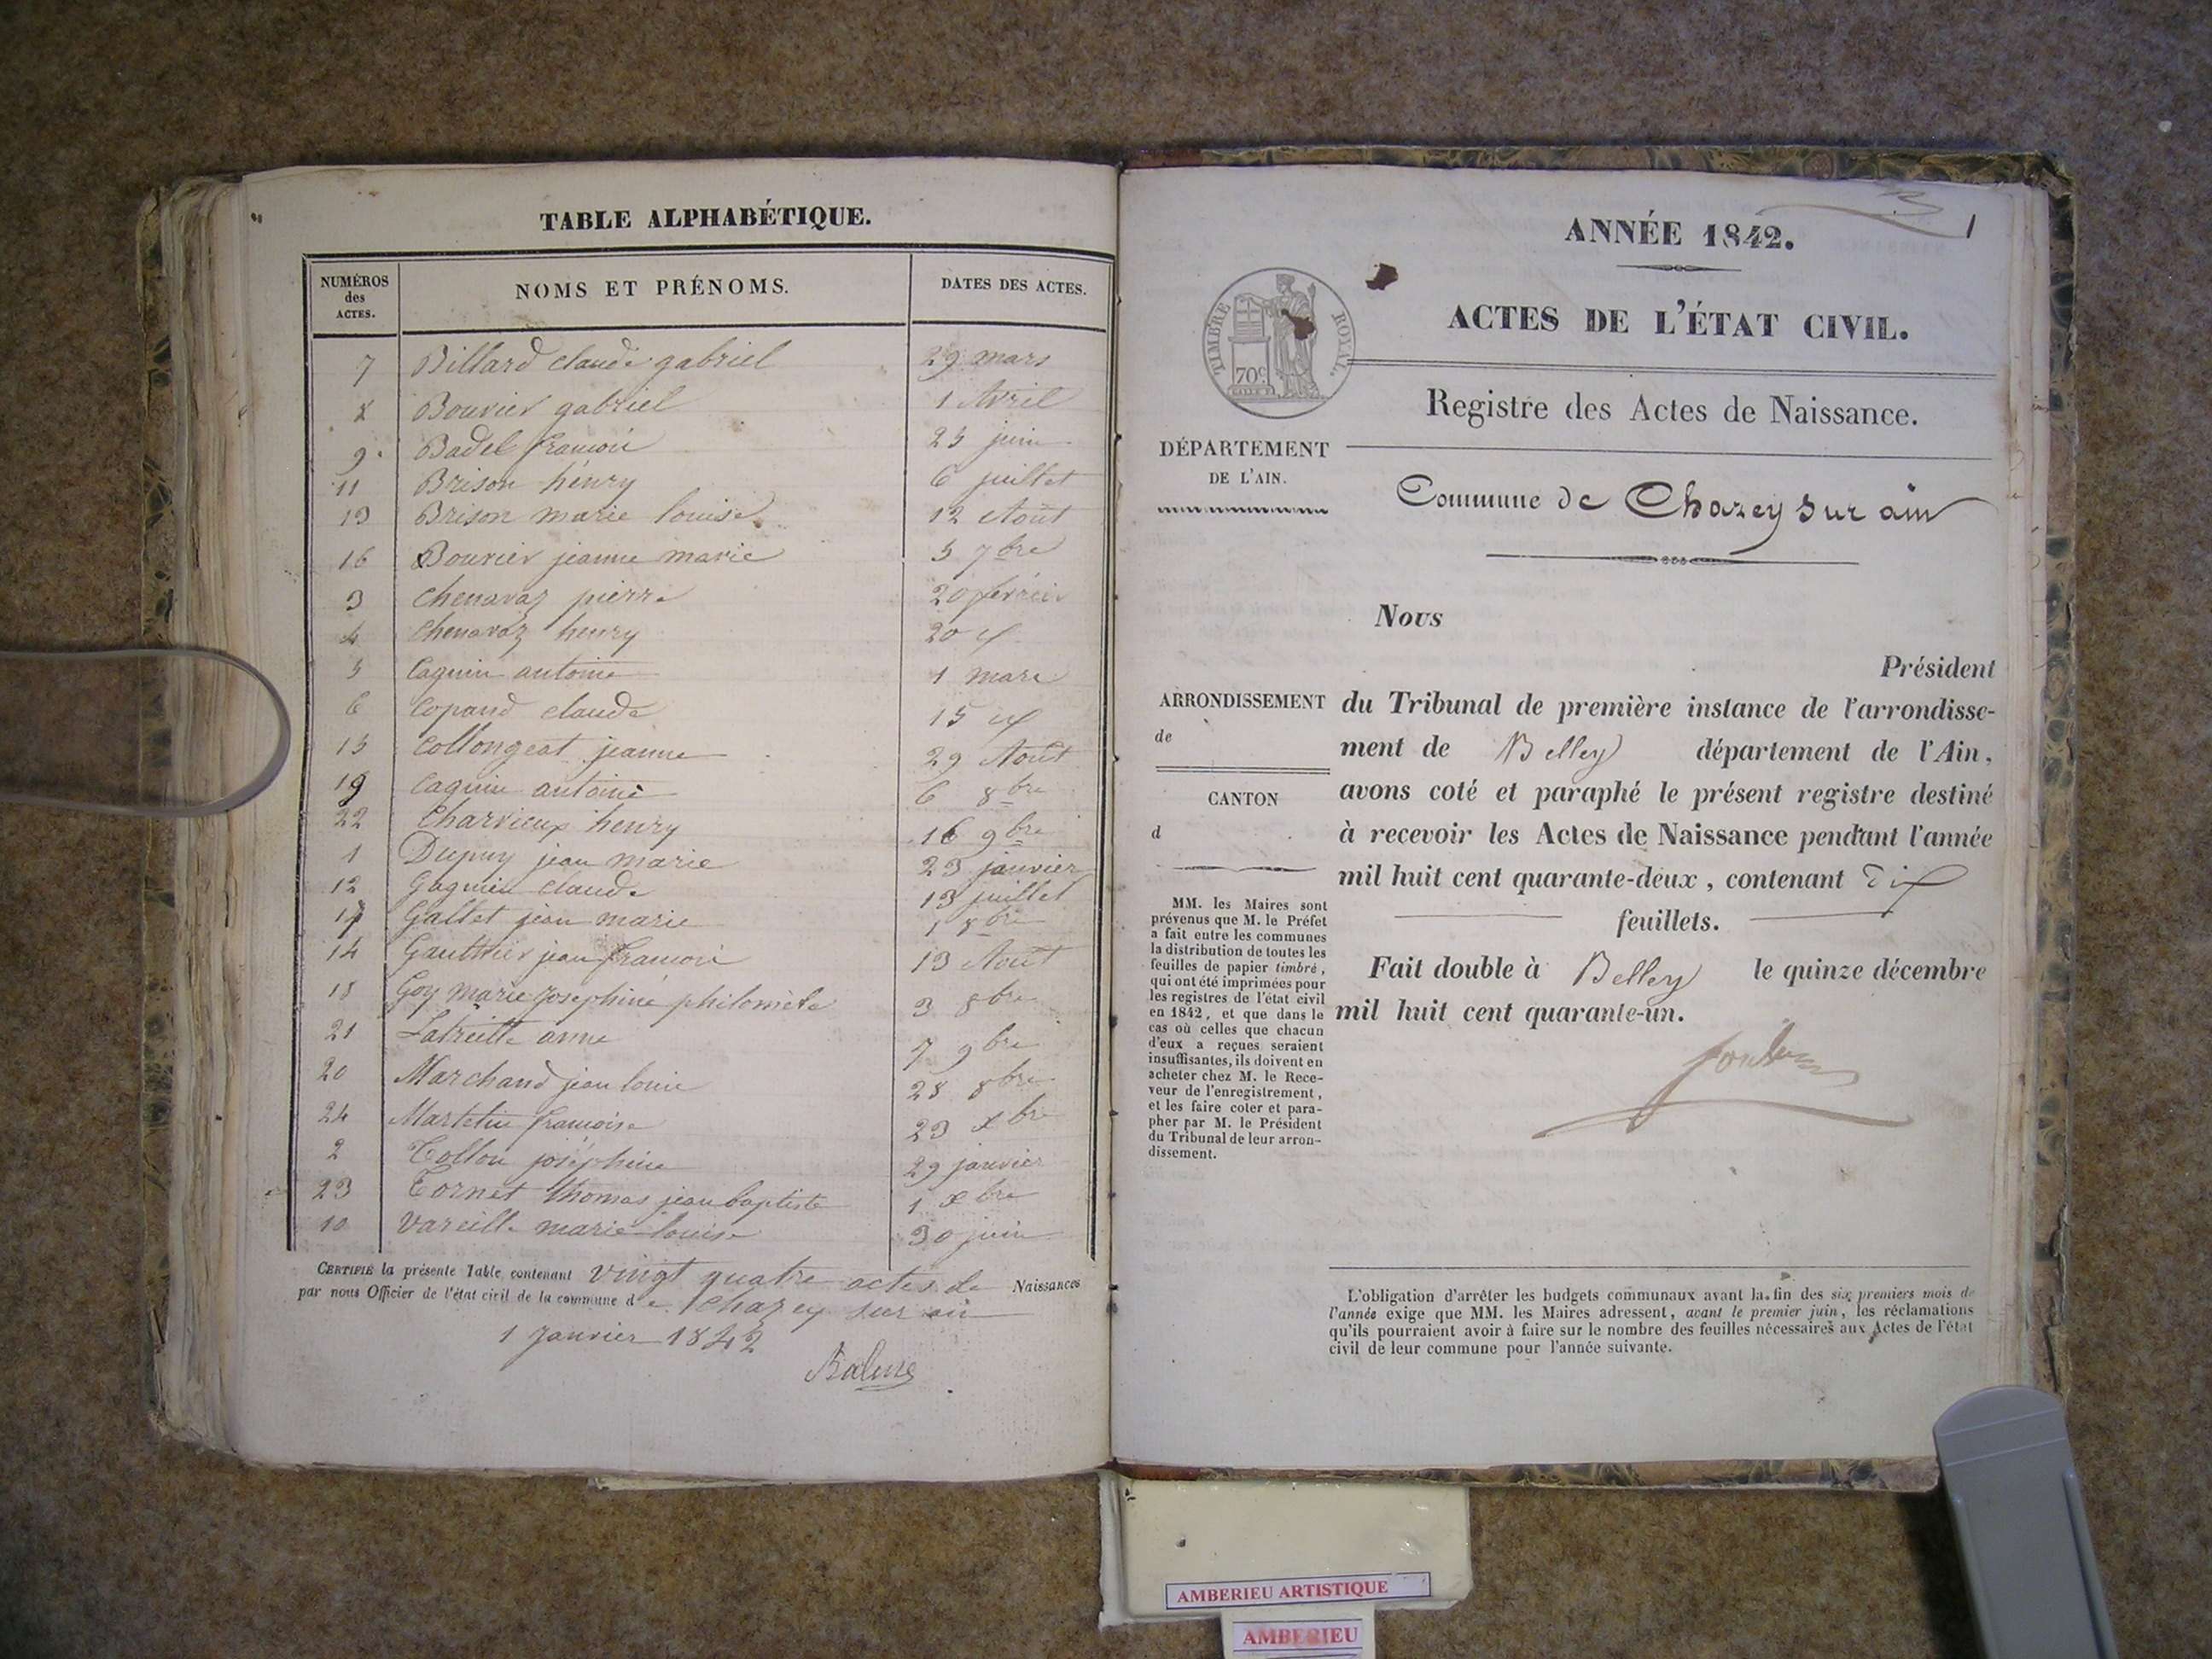 TABLE ALPHABÉTIQUE.
NUMÉROS des ACTES. NOMS ET PRÉNOMS. DATES DES ACTES.
7 Billard claude gabriel 29 mars
8 Bouvier gabriel 1 Avril
9 Badel francois 25 juin
11 Brison henry 6 juillet
13 Brison marie louise 12 Août
16 Bouvier jeanne marie 5 7bre
3 chenavaz pierre 20 février
4 chenavaz henry 20
5 Caguin antoine 1 mars
6 Copand claude 15
15 Collongeat jeanne 29 Août
19 Caguin antoine 6 8bre
22 Charvieux henry 16 9bre
1 Dupuy jean marie 23 janvier
12 Gaguin claude 13 juillet
17 Gallet jean marie 1 8bre
14 Gauthier jean francois 13 Août
18 Goy marie josephine philomèle 3 8bre
21 Latreille anne 7 9bre
20 Marchand jean louis 28 8bre
24 Martelin francoise 23 xbre
2 Tollon joséphine 29 janvier
23 Tornet thomas jean baptiste 1 xbre
10 Vareille marie louise 30 juin
CERTIFIÉ la présente Table, contenant vingt quatre actes de Naissances
par nous Officier de l'état civil de la commune de Chazey sur ain
1 Janvier 1842
Balme
1
ANNÉE 1842.
ACTES DE L'ÉTAT CIVIL.
TIMBRE ROYAL.
70c
Registre des Actes de Naissance.
DÉPARTEMENT
DE L'AIN.
Commune de Chazey sur ain
Nous
Président
ARRONDISSEMENT
de
CANTON
d
du Tribunal de première instance de l'arrondisse-
ment de Belley département de l'Ain,
avons coté et paraphé le présent registre destiné
à recevoir les Actes de Naissance pendant l'année
mil huit cent quarante-deux, contenant dix
feuillets.
Fait double à Belley le quinze décembre
mil huit cent quarante-un.
MM. les Maires sont
prévenus que M. le Préfet
a fait entre les communes
la distribution de toutes les
feuilles de papier timbré,
qui ont été imprimées pour
les registres de l'état civil
en 1842, et que dans le
cas où celles que chacun
d'eux a reçues seraient
insuffisantes, ils doivent en
acheter chez M. le Rece-
veur de l'enregistrement,
et les faire coter et para-
pher par M. le Président
du Tribunal de leur arron-
dissement.
L'obligation d'arrêter les budgets communaux avant la fin des six premiers mois de
l'année exige que MM. les Maires adressent, avant le premier juin, les réclamations
qu'ils pourraient avoir à faire sur le nombre des feuilles nécessaires aux Actes de l'état
civil de leur commune pour l'année suivante.
AMBERIEU ARTISTIQUE
AMBERIEU